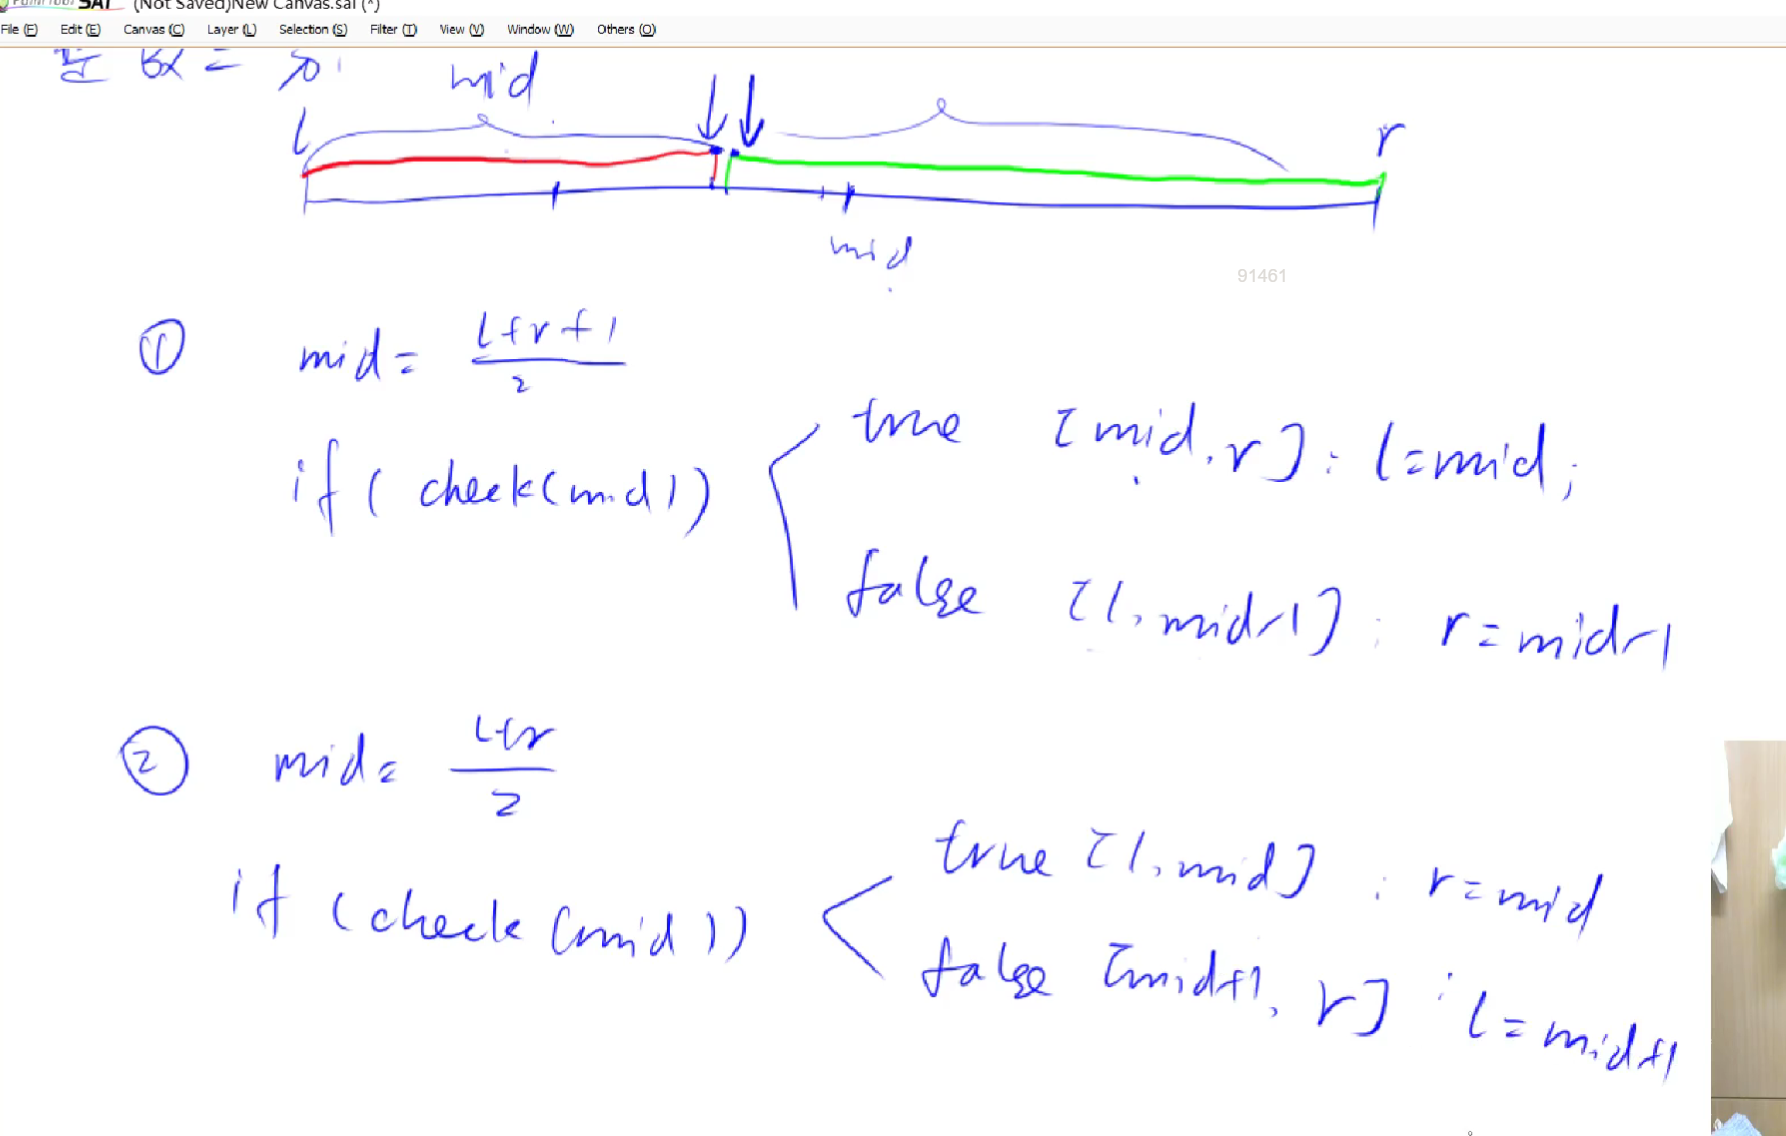 SAI (Not Saved)New Canvas.sai (*)
File (F) Edit (E) Canvas (C) Layer (L) Selection (S) Filter (T) View (V) Window (W) Others (O)
mid
l
r
mid
91461
① mid = l+r+1
2
if ( check(mid)) true [mid, r] : l=mid;
false [l, mid-1] : r=mid-1
② mid = l+r
2
if (check (mid)) true [l, mid] : r=mid
false [mid+1, r] : l=mid+1